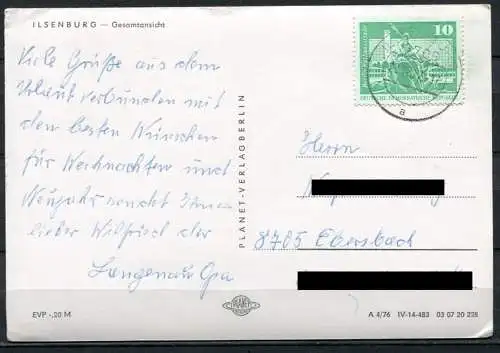 ILSENBURG — Gesamtansicht
Viele Grüße aus dem
Urlaub verbunden mit
den besten Wünschen
für Weihnachten und
Neujahr sendet Ihnen
lieber Wilfried der
Langenau Opa
EVP -.20 M
PLANET-VERLAG BERLIN
PLANET
10
DEUTSCHE DEMOKRATISCHE REPUBLIK
a
Herrn
8705 Ebersbach
A 4/76 IV-14-483 03 07 20 228